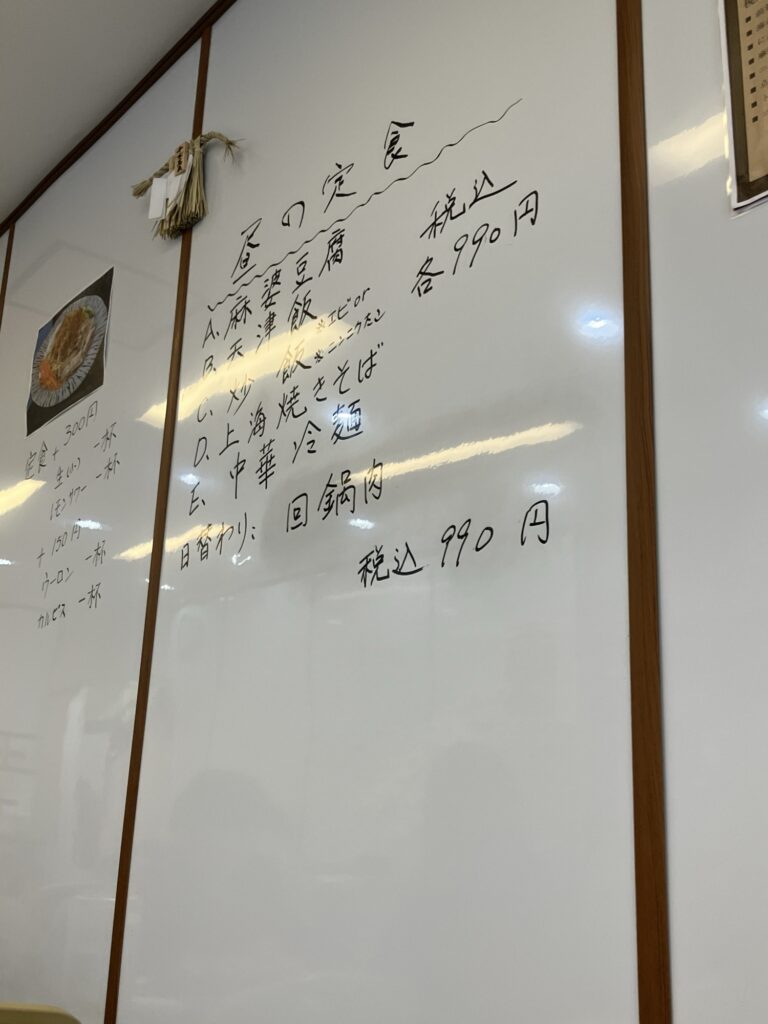 昼の定食
税込
各990円
A. 麻婆豆腐
B. 天津飯
C. 炒飯 ※エビor
※ニンニクたっ
D. 上海焼きそば
E. 中華冷麺
日替わり: 回鍋肉
税込 990円
定食+300円
生(小) 一杯
レモンサワー 一杯
+150円
ウーロン 一杯
カルピス 一杯